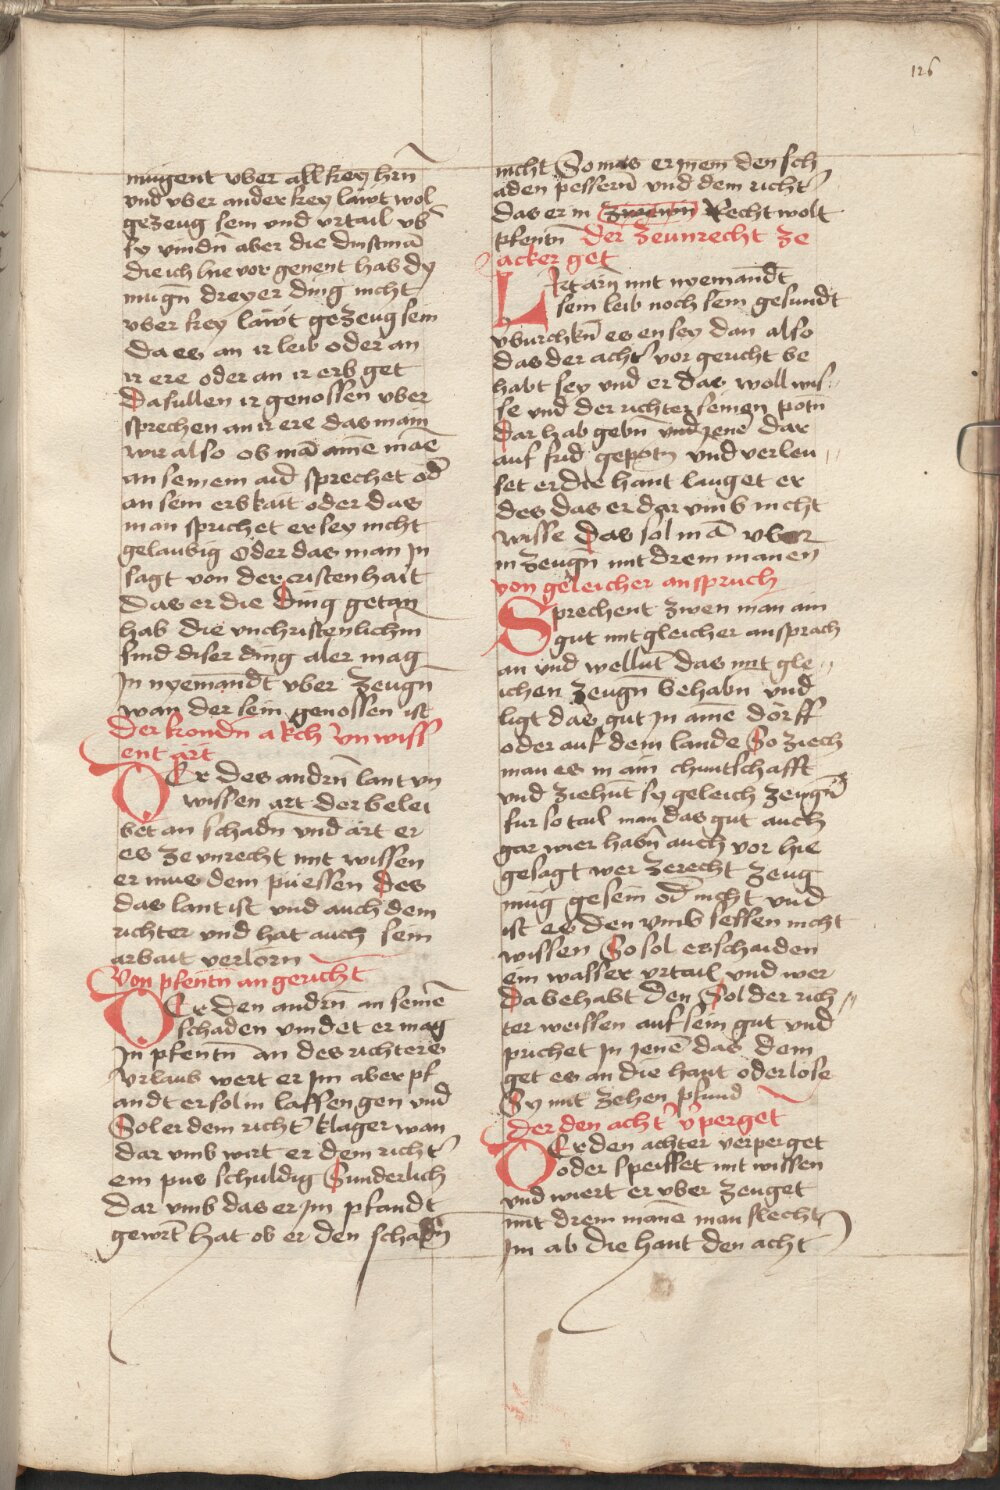 126
mugent vber all key hrn̄
vnd vber ander key läwt wol
gezeug sein vnd vrtail vb̄
sy vindn̄ aber die dinstmā
die ich hie vor genent hab dy
mugn̄ dreyer ding nicht
vber key läwt gezeug sein
da es an ir leib oder an
ir ere oder an ir erb get
Da sullen ir genossen vber
sprechen an ir ere das main
wir also ob mā ainē manē
an seinem aid sprechet od̄
an sein erbkait oder das
man sprichet er sey nicht
gelaubig oder das man jn
sagt von der cristenhait
Das er die Ding getan
hab die vnchristenlichin
sind diser ding aler mag
Jn nyemandt vber zeugn̄
wan der sein genossen ist
Der frondn̄ akch vnwiss
ent art
Er des andrn̄ lant vn
wissen art der belei
bet an schadn̄ vnd art er
es ze vnrecht mit wissen
er mus dem püessen des
das lant ist vnd auch dem
richter vnd hat auch sein
arbait verlorn
Von pfentn̄ an gericht
Er den andrn̄ an seinē
schaden vindet er mag
Jn pfentn̄ an des richters
vrlaub wert er jm aber pf
andt er sol in lassen gen vnd
Sol er dem richt̄ klager wan
dar vmb wirt er dem richt̄
ein pus schuldig Sunderlich
dar vmb das er jm pfandt
gewrt̄ hat ob er den schadn̄
nicht So mus er jnem den sch
aden pessern̄ vnd dem richt̄
das er in Recht wolt
pfentn̄ Der zeunrecht ze
acker get
Let arn̄ mit nyemandt
sein leib noch sein gesundt
vburchkn̄ es en sey dan also
das der acht̄ vor gericht be
habt sey vnd er das woll wis
se vnd der richter seinen potn̄
Dar hab gebn̄ vnd jenē dar
auf frid gepotn̄ vnd verleu
set er die hant lauget er
des das er dar vmb nicht
wisse Das sol mā vber
in zeugn̄ mit drein manen
von geleicher anspruch
Sprechent zwen man ain
gut mit gleicher ansprach
an vnd wellnt̄ das mit gle
ichen zeugn̄ behabn̄ vnd
ligt das gut jn ainē dorff
oder auf dem lande So ziech
man es in ain chuntschafft
vnd ziehnt̄ sy geleich zeugn̄
fur so tail man das gut auch
gar wier habn̄ auch vor hie
gesagt wer zerecht zeug
mug gesein od̄ nicht vnd
ist es den vmb sessen nicht
wissen So sol es schaiden
ein wasser vrtail vnd wer
Da behabt den Sol der rich
ter weissen auf sein gut vnd
prichet jn jenē das dem
get es an die hant oder lose
Sy mit zehen pfund
Der den acht̄ v̄perget
Er den achter verperget
oder speisset mit wissen
vnd wiert er vber zeuget
mit drein manē man slecht
jm ab die hant den acht